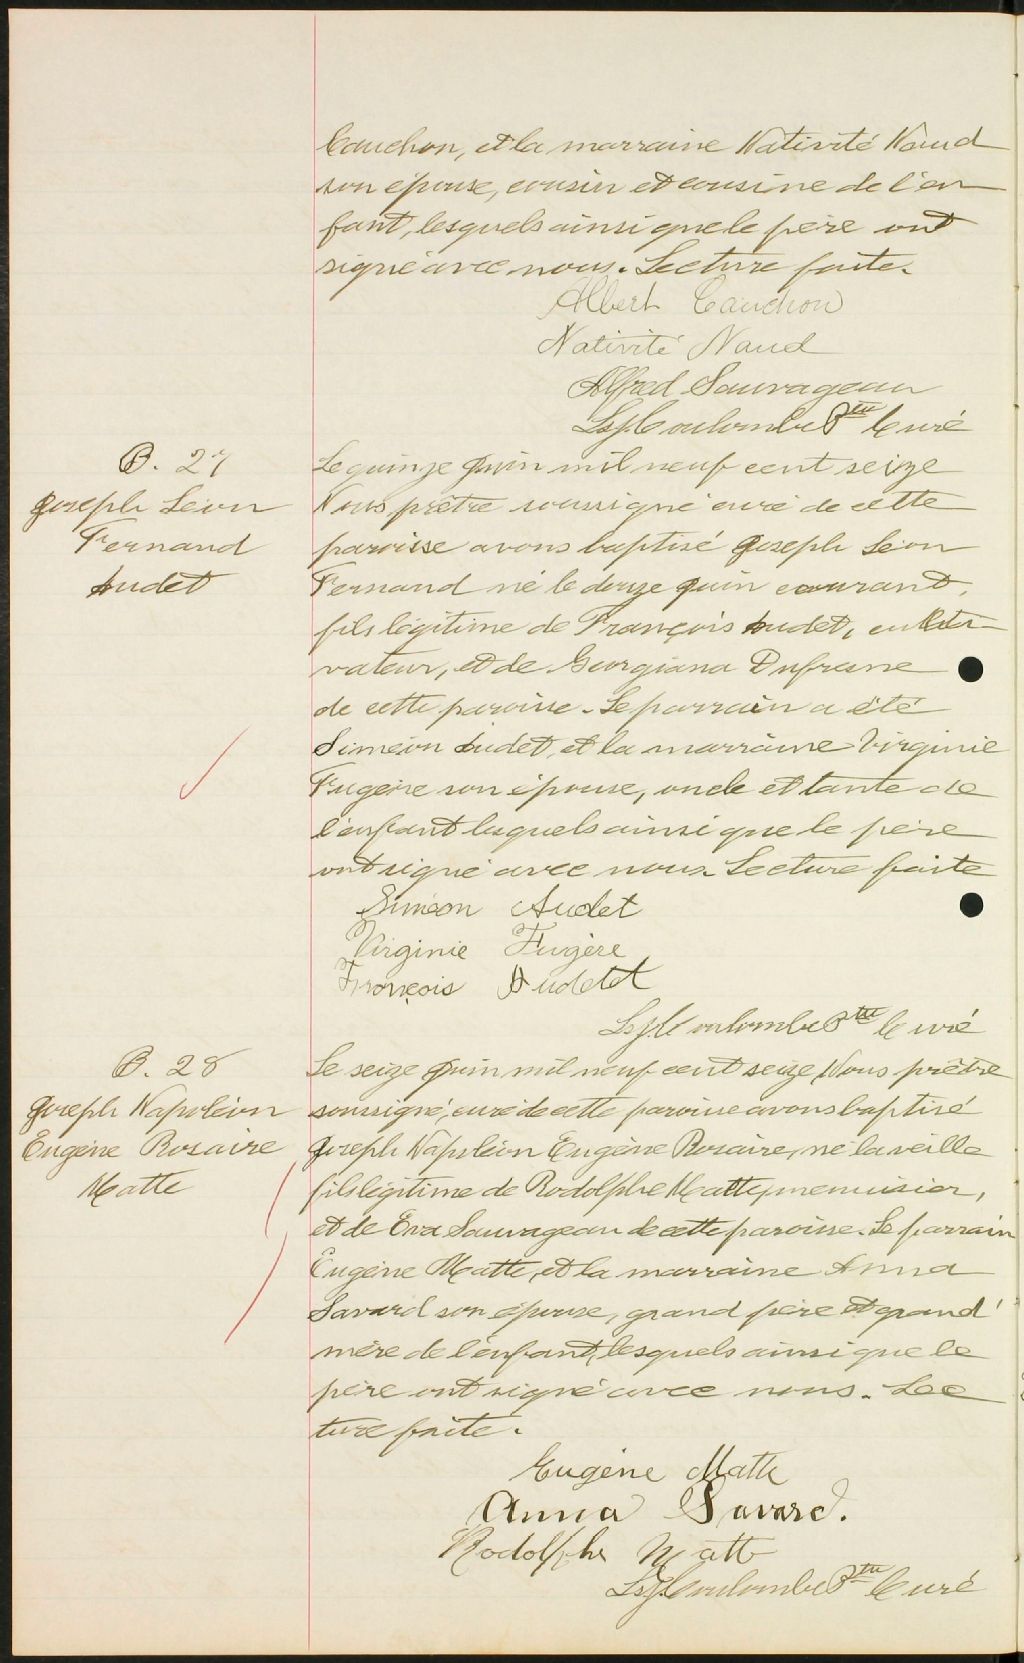 Cauchon, et la marraine Nativité Naud
son épouse, cousin et cousine de l'en
fant, lesquels ainsi que le père ont
signé avec nous. Lecture faite.
Albert Cauchon
Nativité Naud
Alfred Sauvageau
Coulombe Ptre Curé
B. 27
Joseph Léon
Fernand
Audet
Le quinze Juin mil neuf cent seize
Nous prêtre soussigné curé de cette
paroisse avons baptisé Joseph Léon
Fernand né le douze Juin courant,
fils légitime de François Audet, culti-
vateur, et de Georgiana Dufresne
de cette paroisse. Le parrain a été
Siméon Audet, et la marraine Virginie
Fugère son épouse, oncle et tante de
l'enfant lesquels ainsi que le père
ont signé avec nous. Lecture faite
Siméon Audet
Virginie Fugère
François Audet
Coulombe Ptre Curé
B. 28
Joseph Napoléon
Eugène Rosaire
Matte
Le seize Juin mil neuf cent seize, Nous prêtre
soussigné, curé de cette paroisse avons baptisé
Joseph Napoléon Eugène Rosaire, né la veille
fils légitime de Rodolphe Matte, menuisier,
et de Eva Sauvageau de cette paroisse. Le parrain
Eugène Matte, et la marraine Anna
Savard son épouse, grand père et grand'
mère de l'enfant, lesquels ainsi que le
père ont signé avec nous. Lec
ture faite.
Eugène Matte
Anna Savard.
Rodolphe Matte
Coulombe Ptre Curé